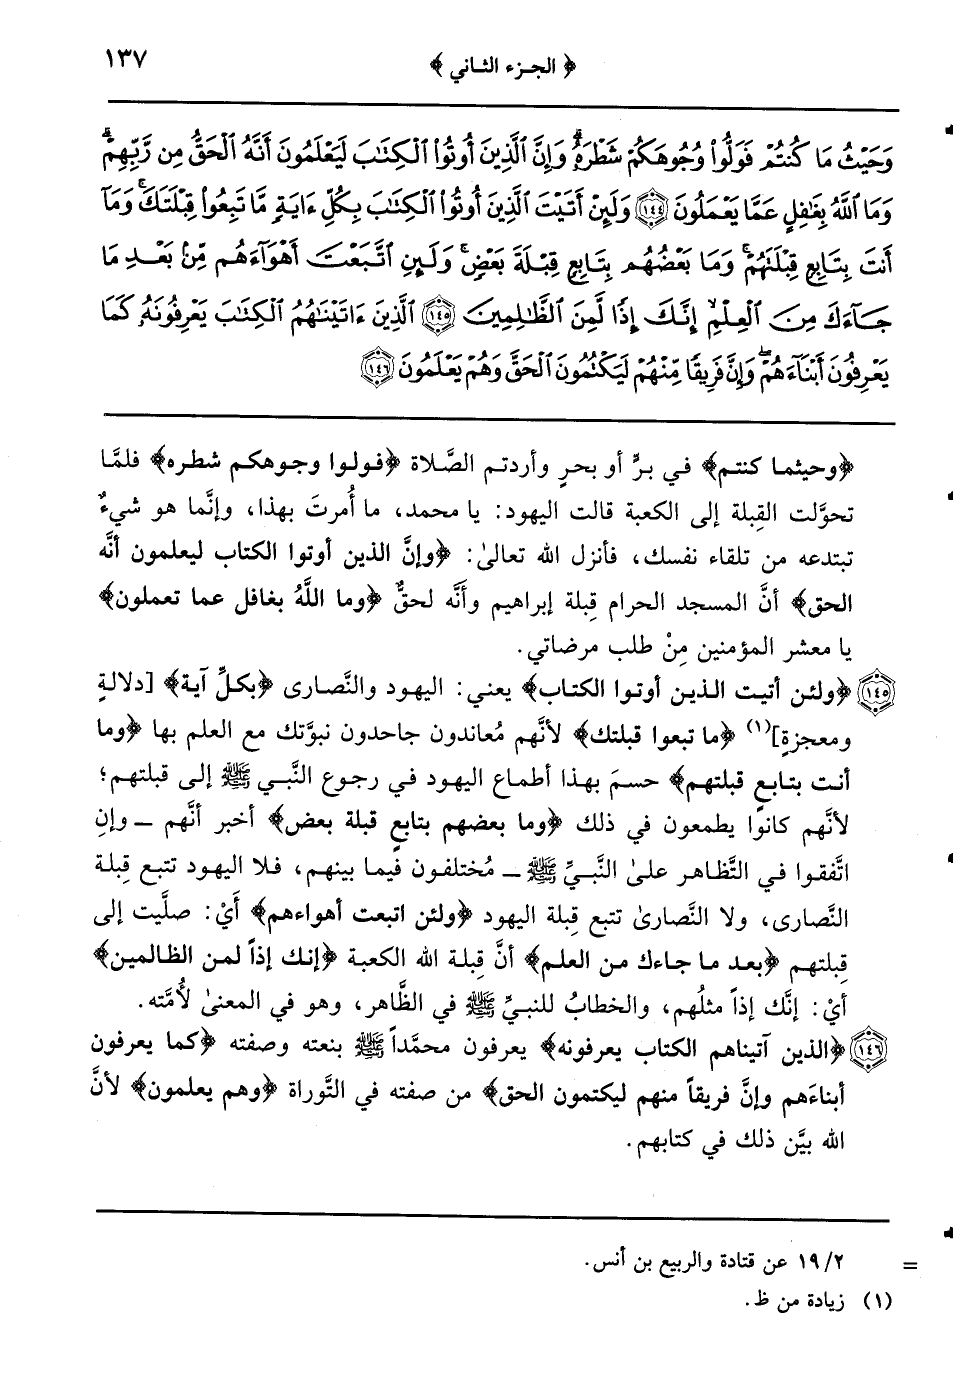 ﴿ الجزء الثاني ﴾
١٣٧
وَحَيْثُ مَا كُنتُمْ فَوَلُّوا۟ وُجُوهَكُمْ شَطْرَهُۥ وَإِنَّ ٱلَّذِينَ أُوتُوا۟ ٱلْكِتَٰبَ لَيَعْلَمُونَ أَنَّهُ ٱلْحَقُّ مِن رَّبِّهِمْ ۗ
وَمَا ٱللَّهُ بِغَٰفِلٍ عَمَّا يَعْمَلُونَ ﴿١٤٤﴾ وَلَئِنْ أَتَيْتَ ٱلَّذِينَ أُوتُوا۟ ٱلْكِتَٰبَ بِكُلِّ ءَايَةٍ مَّا تَبِعُوا۟ قِبْلَتَكَ ۚ وَمَآ
أَنتَ بِتَابِعٍ قِبْلَتَهُمْ ۚ وَمَا بَعْضُهُم بِتَابِعٍ قِبْلَةَ بَعْضٍ ۚ وَلَئِنِ ٱتَّبَعْتَ أَهْوَآءَهُم مِّنۢ بَعْدِ مَا
جَآءَكَ مِنَ ٱلْعِلْمِ ۙ إِنَّكَ إِذًا لَّمِنَ ٱلظَّٰلِمِينَ ﴿١٤٥﴾ ٱلَّذِينَ ءَاتَيْنَٰهُمُ ٱلْكِتَٰبَ يَعْرِفُونَهُۥ كَمَا
يَعْرِفُونَ أَبْنَآءَهُمْ ۖ وَإِنَّ فَرِيقًا مِّنْهُمْ لَيَكْتُمُونَ ٱلْحَقَّ وَهُمْ يَعْلَمُونَ ﴿١٤٦﴾
﴿وحيثما كنتم﴾ في برٍّ أو بحرٍ وأردتم الصَّلاة ﴿فولوا وجوهكم شطره﴾ فلمَّا
تحوَّلت القِبلة إلى الكعبة قالت اليهود: يا محمد، ما أُمرتَ بهذا، وإنَّما هو شيءٌ
تبتدعه من تلقاء نفسك، فأنزل الله تعالىٰ: ﴿وإنَّ الذين أوتوا الكتاب ليعلمون أنَّه
الحق﴾ أنَّ المسجد الحرام قِبلة إبراهيم وأنَّه لحقٌّ ﴿وما اللَّهُ بغافل عما تعملون﴾
يا معشر المؤمنين مِنْ طلب مرضاتي.
﴿١٤٥﴾ ﴿ولئن أتيت الذين أوتوا الكتاب﴾ يعني: اليهود والنَّصارى ﴿بكلِّ آية﴾ [دلالةٍ
ومعجزةٍ](١) ﴿ما تبعوا قبلتك﴾ لأنَّهم مُعاندون جاحدون نبوَّتك مع العلم بها ﴿وما
أنت بتابعٍ قبلتهم﴾ حسمَ بهذا أطماع اليهود في رجوع النَّبي ﷺ إلى قبلتهم؛
لأنَّهم كانوا يطمعون في ذلك ﴿وما بعضهم بتابعٍ قبلة بعض﴾ أخبر أنَّهم ـ وإنِ
اتَّفقوا في التَّظاهر علىٰ النَّبيِّ ﷺ ـ مُختلفون فيما بينهم، فلا اليهود تتبع قِبلة
النَّصارى، ولا النَّصارىٰ تتبع قِبلة اليهود ﴿ولئن اتبعت أهواءهم﴾ أَيْ: صلَّيت إلى
قِبلتهم ﴿بعد ما جاءك من العلم﴾ أنَّ قِبلة الله الكعبة ﴿إنك إذاً لمن الظالمين﴾
أيْ: إنَّك إذاً مثلُهم، والخطابُ للنبيِّ ﷺ في الظَّاهر، وهو في المعنىٰ لأُمَّته.
﴿١٤٦﴾ ﴿الذين آتيناهم الكتاب يعرفونه﴾ يعرفون محمَّداً ﷺ بنعته وصفته ﴿كما يعرفون
أبناءَهم وإنَّ فريقاً منهم ليكتمون الحق﴾ من صفته في التَّوراة ﴿وهم يعلمون﴾ لأنَّ
الله بيَّن ذلك في كتابهم.
= ١٩/٢ عن قتادة والربيع بن أنس.
(١) زيادة من ظ.